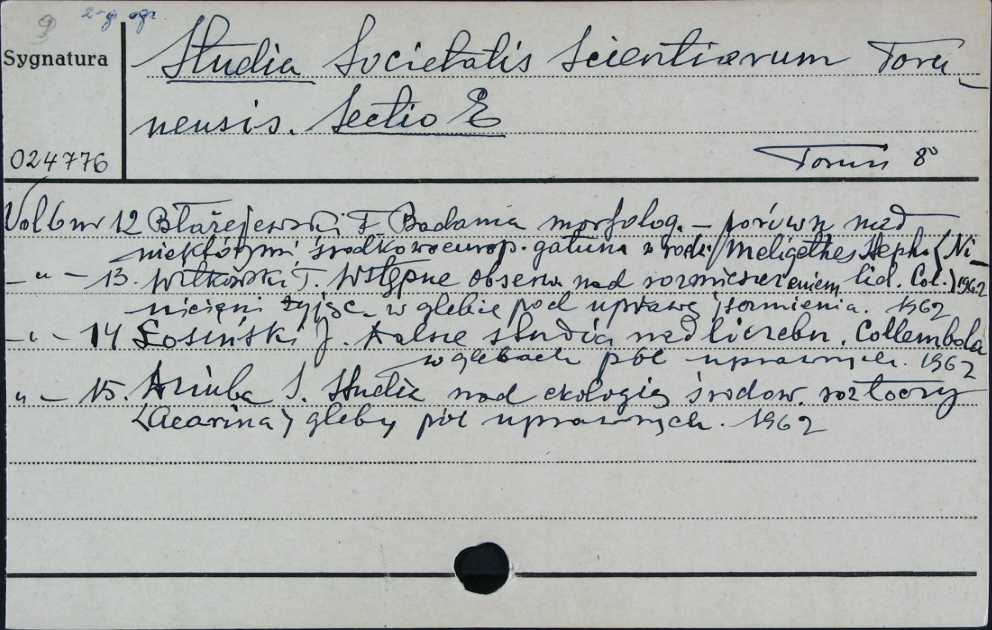 9 2-gi egz.
Sygnatura
Studia Societatis Scientiarum Toru-
nensis. Sectio E
024776
Toruń 8°
Vol 6 nr 12 Błażejewski F. Badania morfolog. - porówn. nad
niektórymi środkowoeurop. gatun. z rodz. Meligethes Steph. (Ni-
-"- 13. Witkowski T. Wstępne obserw. nad rozmieszczeniem tid. Col.) 1962
nicieni żyjąc. w glebie pod uprawę jęczmienia. 1962
-"- 14 Łosiński J. Dalsze studia nad liczebn. Collembola
w glebach pól uprawnych. 1962
"- 15. Dziuba S. Studia nad ekologią środow. roztoczy
(Acarina) gleby pól uprawnych. 1962